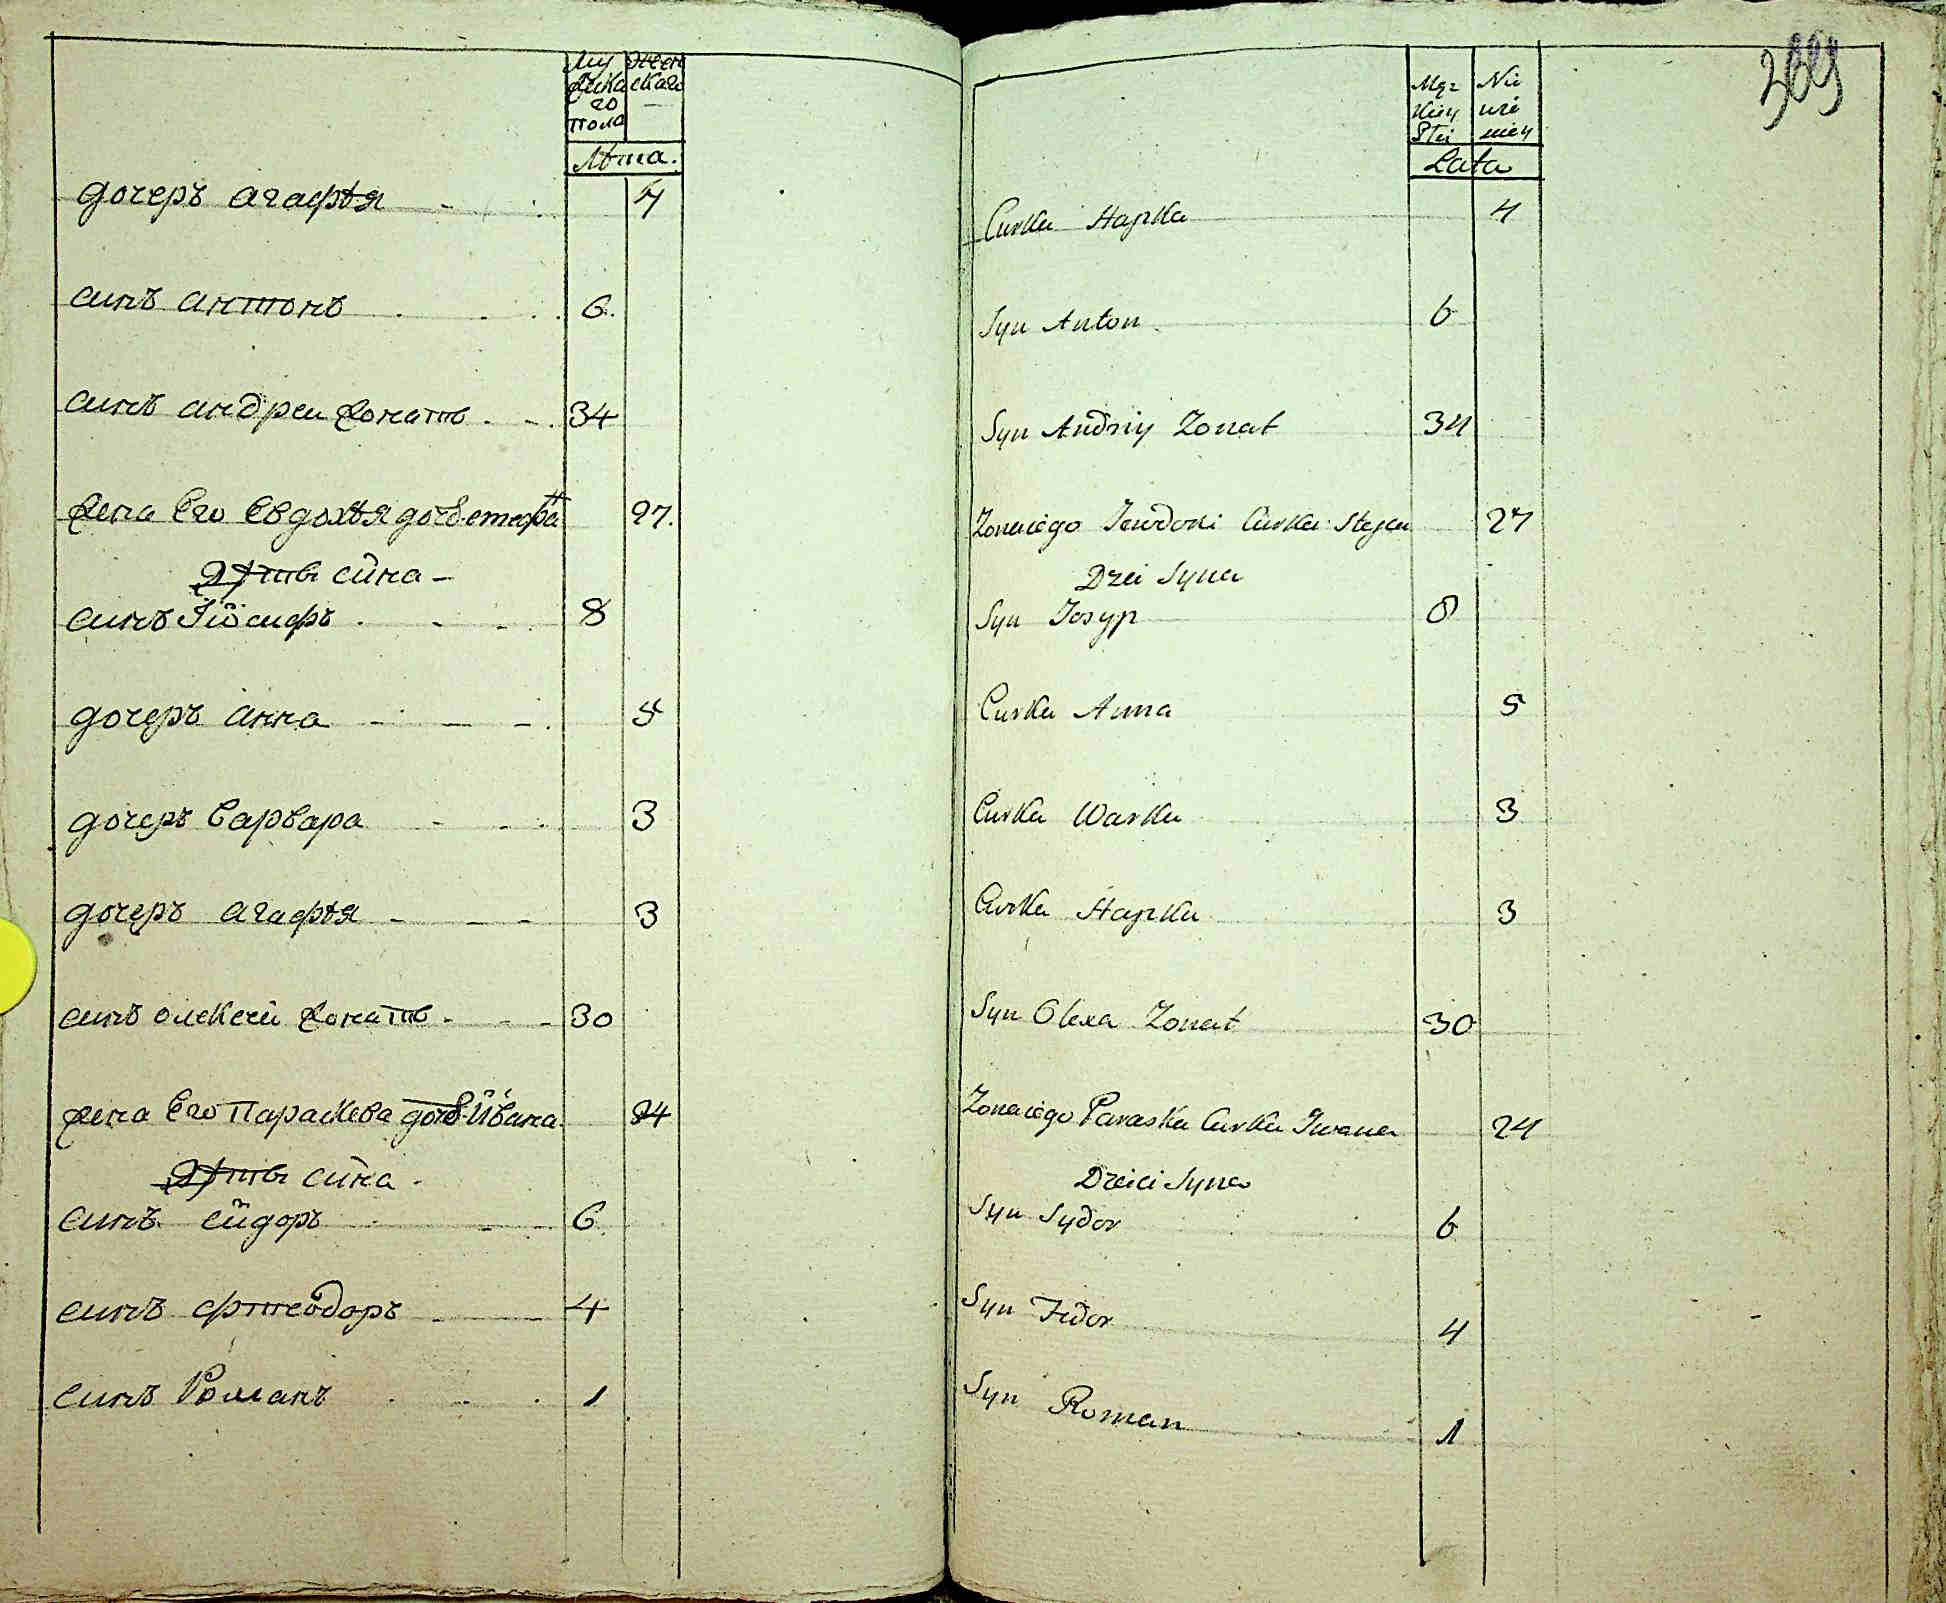 Му жеен
жска скаго
го
пола
Лѣта.
дочеръ агафѣя 4
синъ антонъ 6.
синъ андреи жонатъ 34
жена Его Евдохѣя дочь стефа 27.
Дѣти сина
синъ Іосифъ 8
дочеръ анна 5
дочеръ варвара 3
дочеръ агафѣя 3
синъ олексѣй жонатъ 30
жена Его Параскева дочь Ивана 24
Дѣти сина
синъ сидоръ 6
синъ фтеодоръ 4
синъ Романъ 1
369
Męz Nie
kiey wie
Płci sciey
Lata
Curka Hapka 4
Syn Anton 6
Syn Andriy Zonat 34
Zona iego Iewdoki Curka Stefa 27
Dzei Syna
Syn Iosyp 8
Curka Anna 5
Curka Warka 3
Curka Hapka 3
Syn Olexa Zonat 30
Zona iego Paraska Curka Iwana 24
Dzieci Syna
Syn Sydor 6
Syn Fedor 4
Syn Roman 1